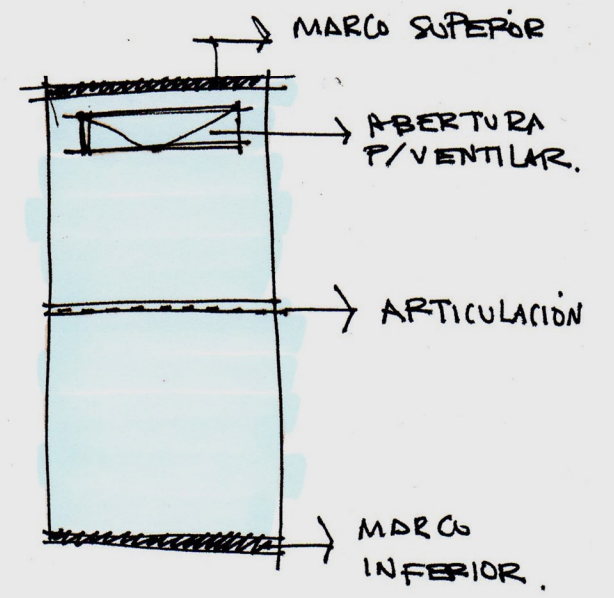 MARCO SUPERIOR
ABERTURA
P/VENTILAR.
ARTICULACIÓN
MARCO
INFERIOR.